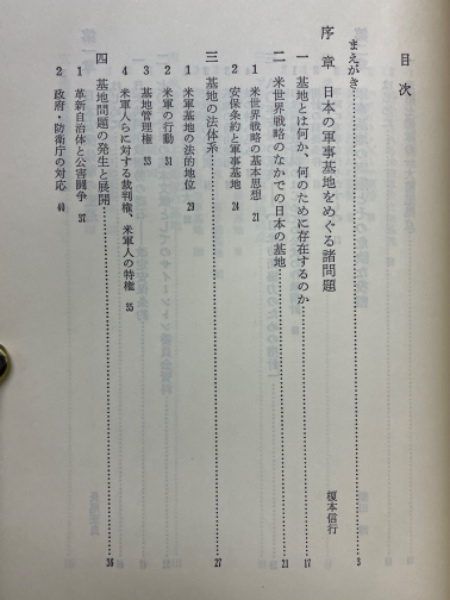 目次
まえがき……3
序章　日本の軍事基地をめぐる諸問題　榎本信行
一　基地とは何か、何のために存在するのか……17
二　米世界戦略のなかでの日本の基地……21
1　米世界戦略の基本思想　21
2　安保条約と軍事基地　24
三　基地の法体系……27
1　米軍基地の法的地位　29
2　米軍の行動　31
3　基地管理権　33
4　米軍人らに対する裁判権、米軍人の特権　35
四　基地問題の発生と展開……36
1　革新自治体と公害闘争　37
2　政府・防衛庁の対応　40